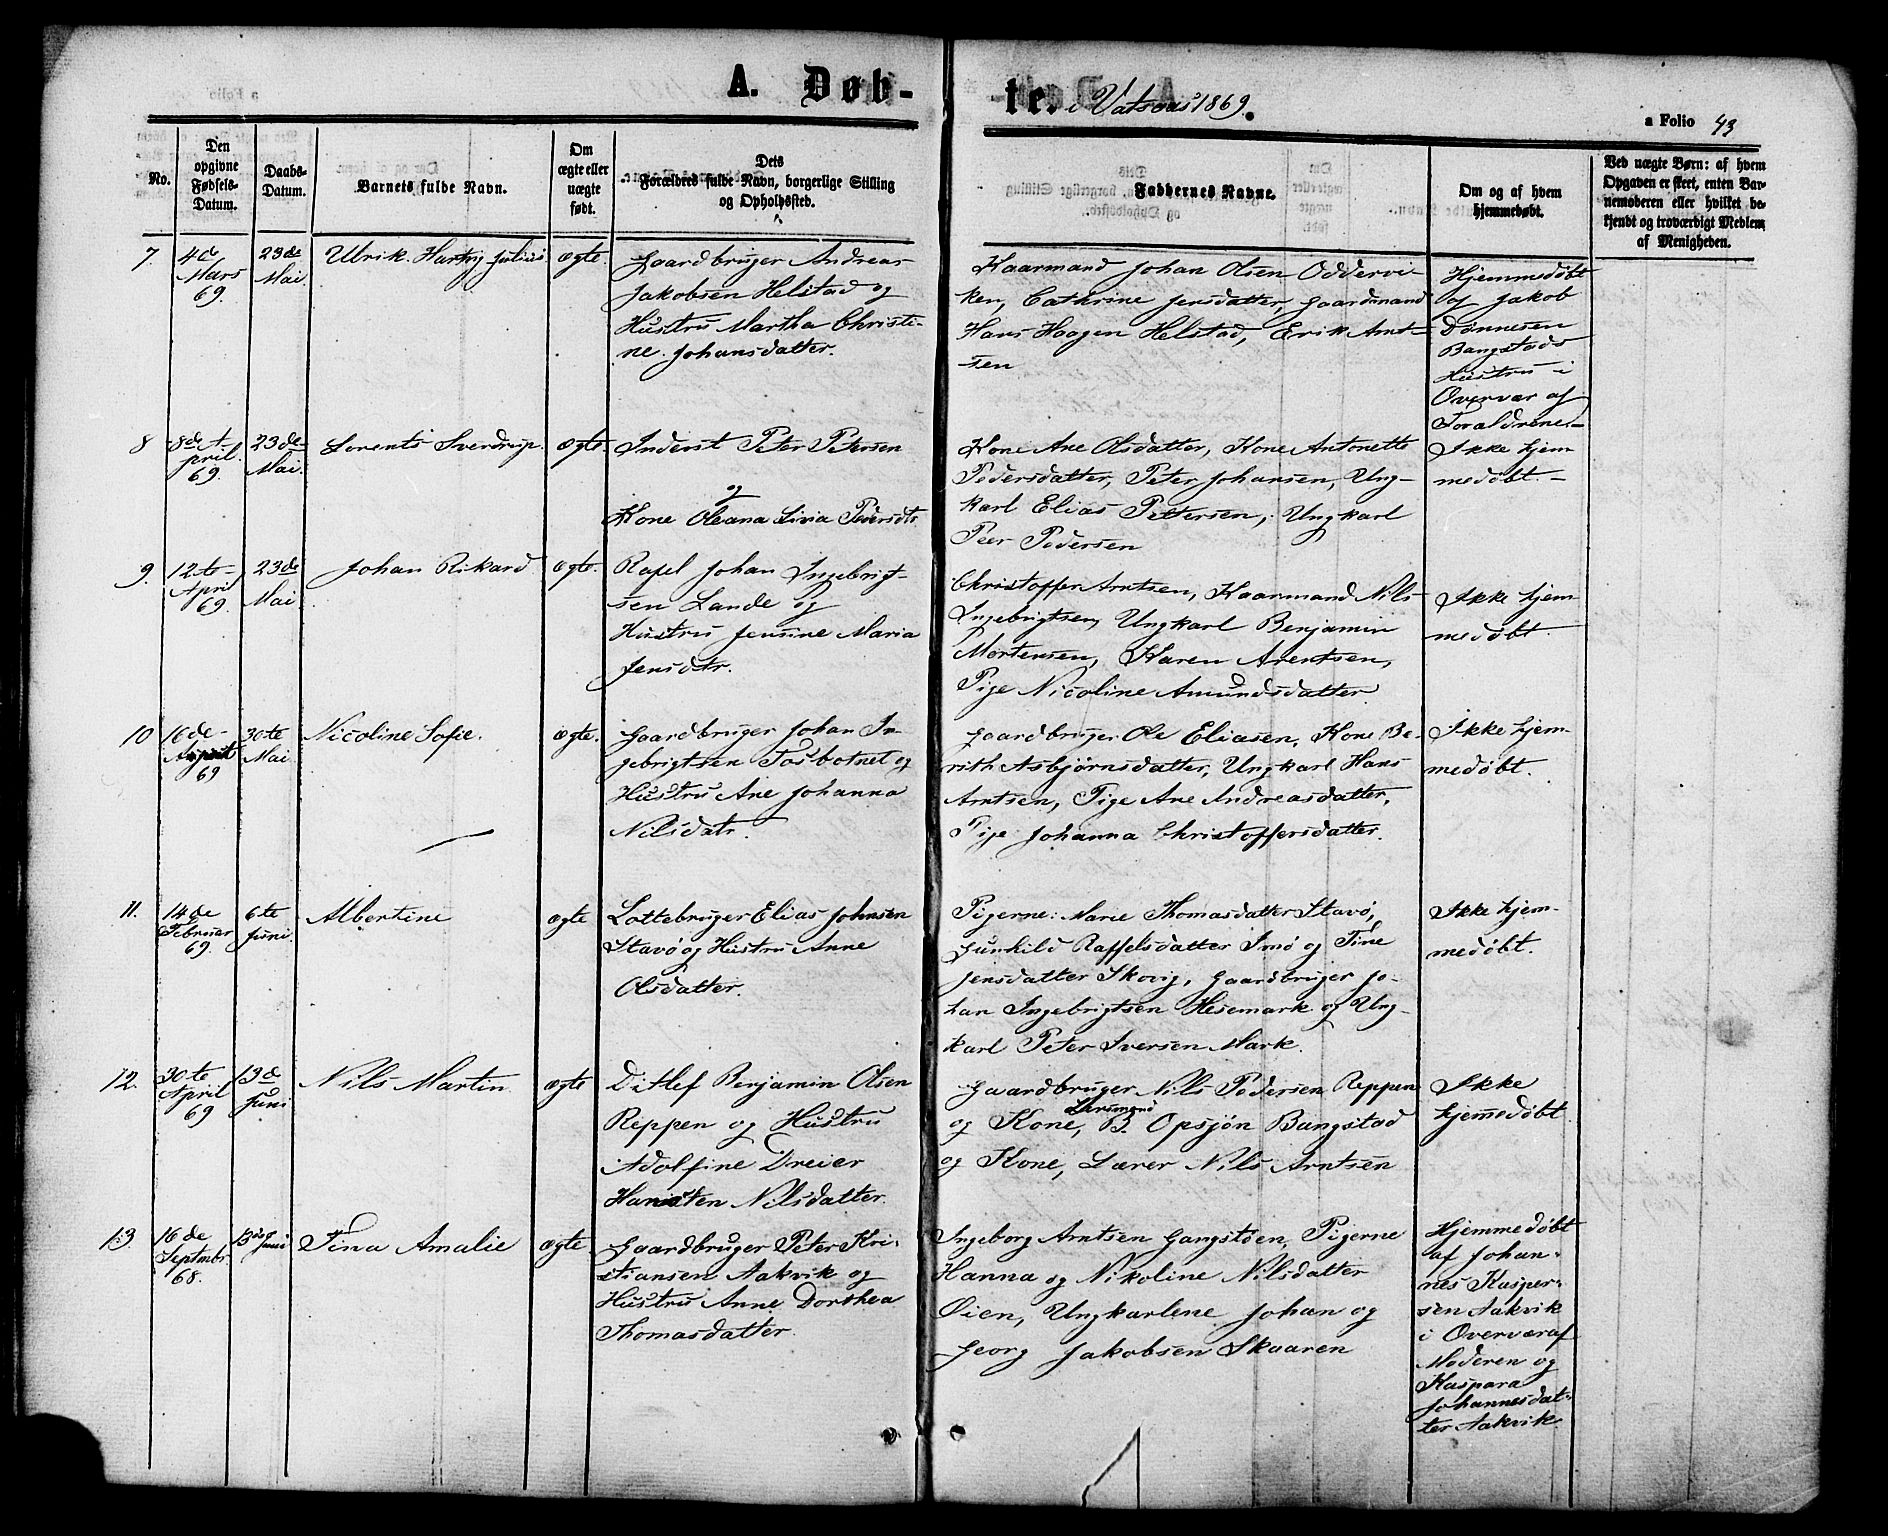 A. Døb-
te. i Vatsaas 1869.
a Folio 43
No.
Den
opgivne
Fødsels-
Datum.
Daabs-
Datum.
Barnets fulde Navn.
Om
ægte eller
uægte
født.
Dets
Forældres fulde Navn, borgerlige Stilling
og Opholdssted.
Faddernes Navne.
Om og af hvem
hjemmedøbt.
Ved uægte Børn: af hvem
Opgaven er skeet, enten Bar-
nemoderen eller hvilket be-
kjendt og troværdigt Medlem
af Menigheden.
7.
4de
Mars
69.
23de
Mai
Ulrik Hartvig Julius
ægte.
Gaardbruger Andreas
Jakobsen Helstad og
Hustru Martha Christi-
ne Johansdatter.
Kaarmand Johan Olsen Oddervi-
ken, Cathrine Jensdatter, Gaardmand
Hans Haagen Helstad, Erik Arnt-
sen
Hjemmedøbt
af Jakob
Dønnesen
Bangstads
Hustru i
Overvær af
Forældrene.
8
8de A-
pril
69.
23de
Mai.
Lorents Sverdrup.
ægte.
Inderst Peter Petersen
og
Kone Oleana Livia Pedersdtr.
Kone Ane Olsdatter, Kone Antonette
Pedersdatter, Peter Johansen, Ung-
karl Elias Pettersen, Ungkarl
Peer Pedersen
Ikke hjem-
medøbt.
9.
12te
April
69.
23de
Mai
Johan Rikard
ægte.
Rafel Johan Ingebrigt-
sen Lande og
Hustru Jensine Maria
Jensdtr.
Christoffer Arntsen, Kaarmand Nils
Ingebrigtsen, Ungkarl Benjamin
Mortensen, Karen Arentsen,
Pige Nicoline Amundsdatter
Ikke hjem
medøbt.
10
16de
April
69
30te
Mai
Nicoline Sofie.
ægte.
Gaardbruger Johan In-
gebrigtsen Fosbotnet og
Hustru Ane Johanna
Nilsdatr.
Gaardbruger Ole Eliasen, Kone Be-
rith Asbjørnsdatter, Ungkarl Hans
Arntsen, Pige Ane Andreasdatter,
Pige Johanna Christoffersdatter.
Ikke hjem-
medøbt.
11.
14de
Februar
69.
6te
Juni.
Albertine
ægte
Lottebruger Elias Johnsen
Stavø og Hustru Anne
Olsdatter.
Pigerne: Marie Thomasdatter Stavø,
Gunhild Raffelsdatter Imø og Tine
Jensdatter Skovig, Gaardbruger Jo-
han Ingebrigtsen Hesemark og Ung-
karl Peter Iversen Mark.
Ikke hjem-
medøbt.
12.
30te
April
69
13de
Juni
Nils Martin
ægte
Ditlef Benjamin Olsen
Reppen og Hustru
Adolfine Dreier
Hansten Nilsdatter.
Gaardbruger Nils Pedersen Reppen
Lensmand
og Kone, B. Opsjøn Bangstad
og Kone, Lærer Nils Arntsen
Ikke
hjemmedøbt
13.
16de
Septmbr.
68.
13de Juni
Tina Amalie
ægte.
Gaardbruger Peter Kri-
stiansen Aakvik og
Hustru Anne Dorthea
Thomasdatter.
Ingeborg Arntsen Gangstøen, Pigerne
Hanna og Nikoline Nilsdatter
Øien, Ungkarlene Johan og
Georg Jakobsen Skaaren
Hjemmedøbt
af Johan-
nes Kasper-
sen Aakvik
i Overvær af
Moderen og
Kaspara
Johannesdat-
ter Aakvik